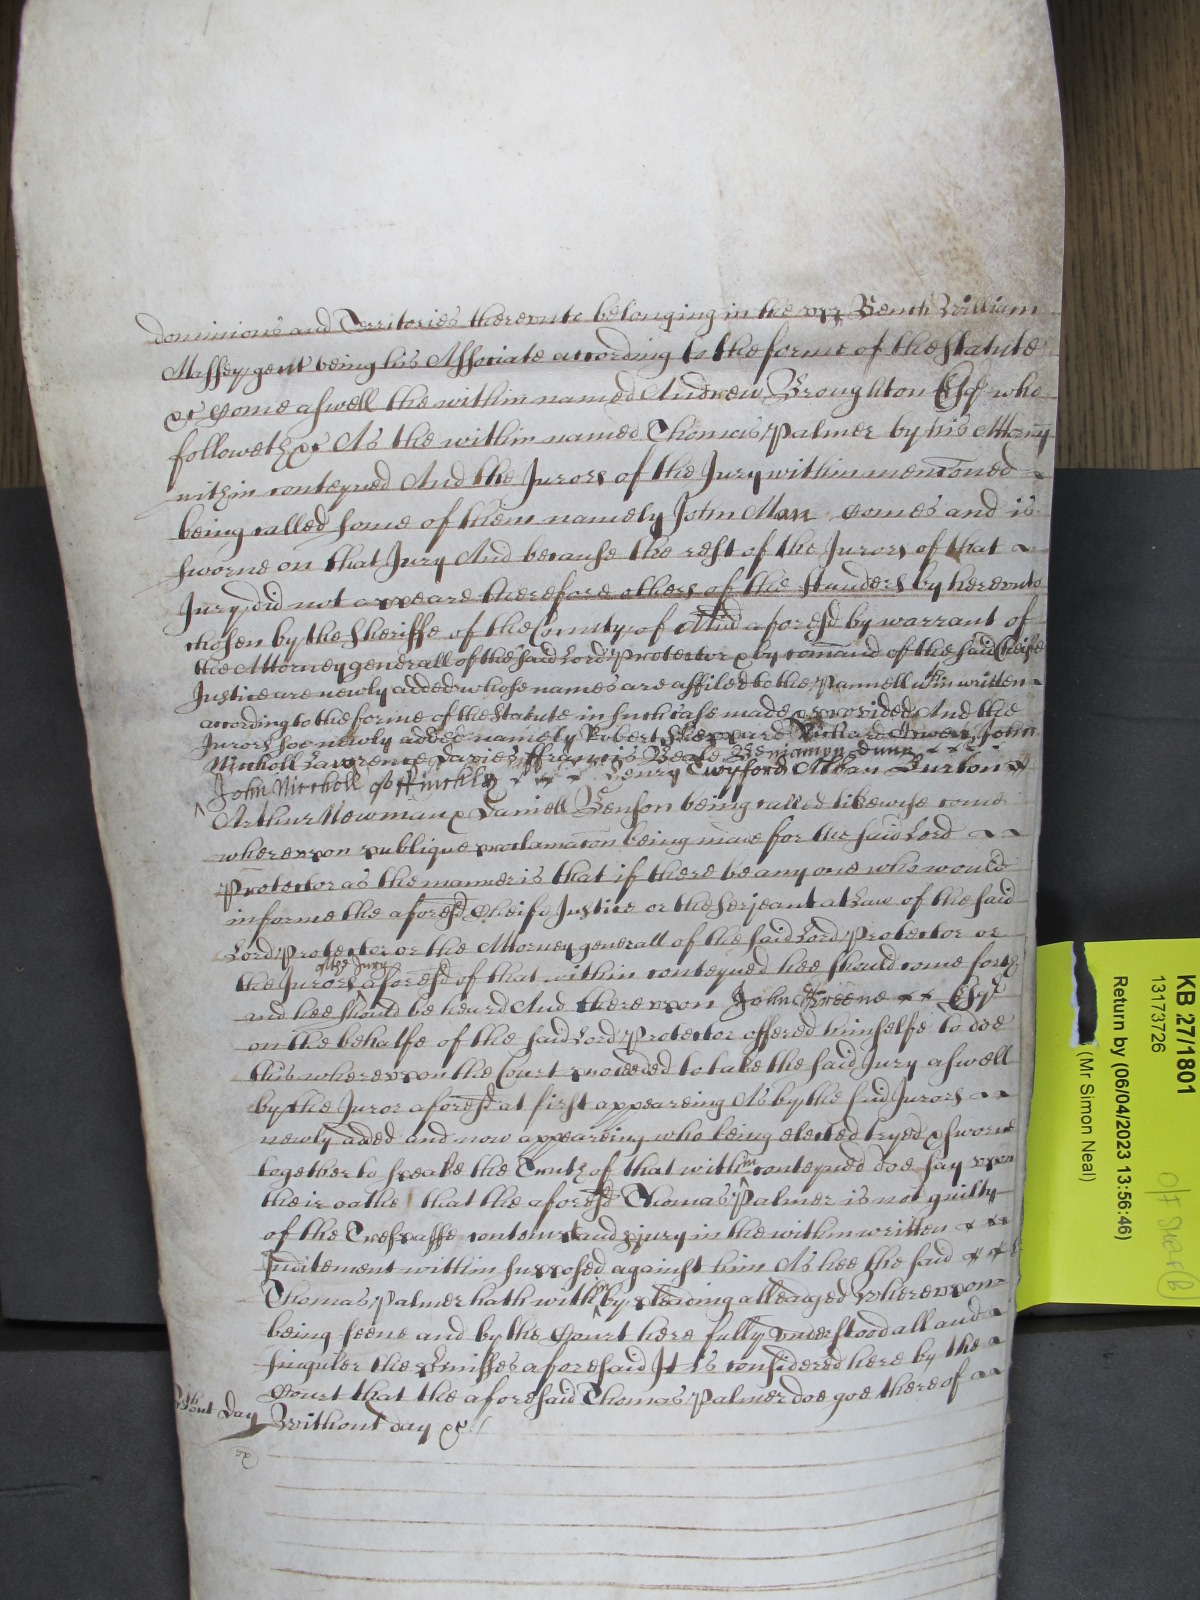 dominions and Territories therevnto belonging in the vpp Bench William
Massey gent being his Associate according to the forme of the Statute
&c Come aswell the within named Andrew Broughton Esqr who
followeth &c As the within named Thomas Palmer by his Attorny
within conteyned And the Jurors of the Jury within menconed
being called some of them namely John Man comes and is
sworne on that Jury And because the rest of the Jurors of that
Jury did not appeare therefore others of the standers by herevnto
chosen by the Sheriffe of the County of Midd aforesd by warrant of
the Attorney generall of the said Lord Protector & by comand of the said Cheife
Justice are newly added whose names are affiled to the Pannell wthin written
according to the forme of the Statute in such case made & provided And the
Jurors soe newly added namely Robert Sheppard Richard Powell John
Nicholl Lawrence Davies ffrancis Beale Beniamyn Dunn
John Nicholl of ffinchly Henry Twyford Alban Burton
Arthur Newman & Daniell Benson being called likewise come
wherevpon publique proclamacon being made for the said Lord
Protector as the manner is that if there be any one who would
informe the aforesd Cheife Justice or the Serjeant at Law of the said
Lord Protector or the Attorney generall of the said Lord Protector or
the Jurors of the Jury aforesd of that within conteyned hee should come forth
and hee should be heard And therevpon John Greene Esqr
on the behalfe of the said Lord Protector offered himselfe to doe
this wherevpon the Court proceeded to take the said Jury aswell
by the Juror aforesd at first appeareing As by the said Jurors
newly added and now appeareing who being elected tryed & sworne
together to speake the Truth of that within conteyned doe say vpon
their oathe that the aforesd Thomas Palmer is not guilty
of the Trespasse contempt and iniury in the within written
Inditement within supposed against him As hee the said
Thomas Palmer hath within by pleading alleaged Wherevpon
being seene and by the Court here fully vnderstood all and
singuler the premisses aforesaid It is considered here by the
Court that the aforesaid Thomas Palmer doe goe thereof
Wthout Day
Without day &c
KB 27/1801
13173726
Return by (06/04/2023 13:56:46)
(Mr Simon Neal)